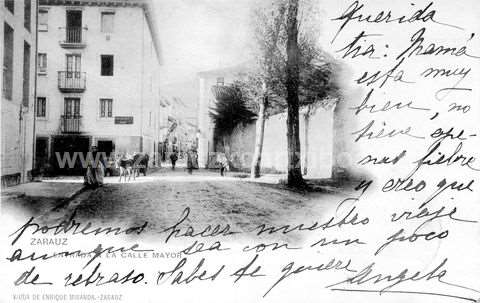 Querida
tia: Mamá
está muy
bien, no
tiene ape-
nas fiebre
y creo que
podremos hacer nuestro viaje
aunque sea con un poco
de retraso. Sabes te quiere
Angela
ZARAUZ
ENTRADA A LA CALLE MAYOR
VIUDA DE ENRIQUE MIRANDA.-ZARAUZ